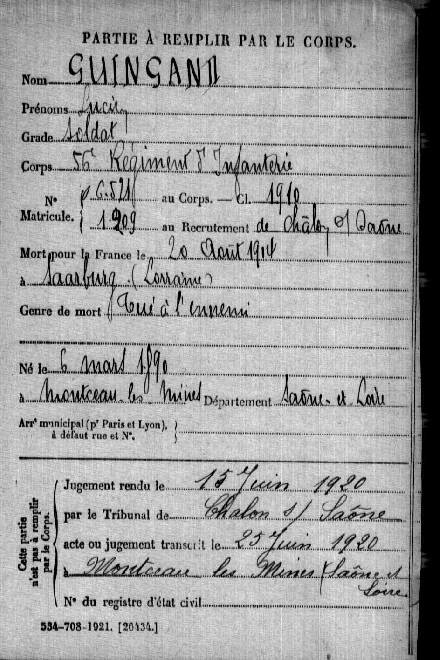 PARTIE À REMPLIR PAR LE CORPS.
Nom GUINGAND
Prénoms Lucien
Grade Soldat
Corps 56e Régiment d'Infanterie
N° Matricule. { 6.521 au Corps. — Cl. 1910
1209 au Recrutement de Châlon s/ Saône
Mort pour la France le 20 Août 1914
à Saarburg (Lorraine)
Genre de mort Tué à l'ennemi
Né le 6 mars 1890
à Montceau-les-Mines Département Saône-et-Loire
Arrt municipal (pr Paris et Lyon), à défaut rue et N°. }
Cette partie n'est pas à remplir par le Corps.
Jugement rendu le 15 Juin 1920
par le Tribunal de Chalon s/ Saône
acte ou jugement transcrit le 25 Juin 1920
à Montceau les Mines (Saône et Loire
N° du registre d'état civil
534-708-1921. [26434.]